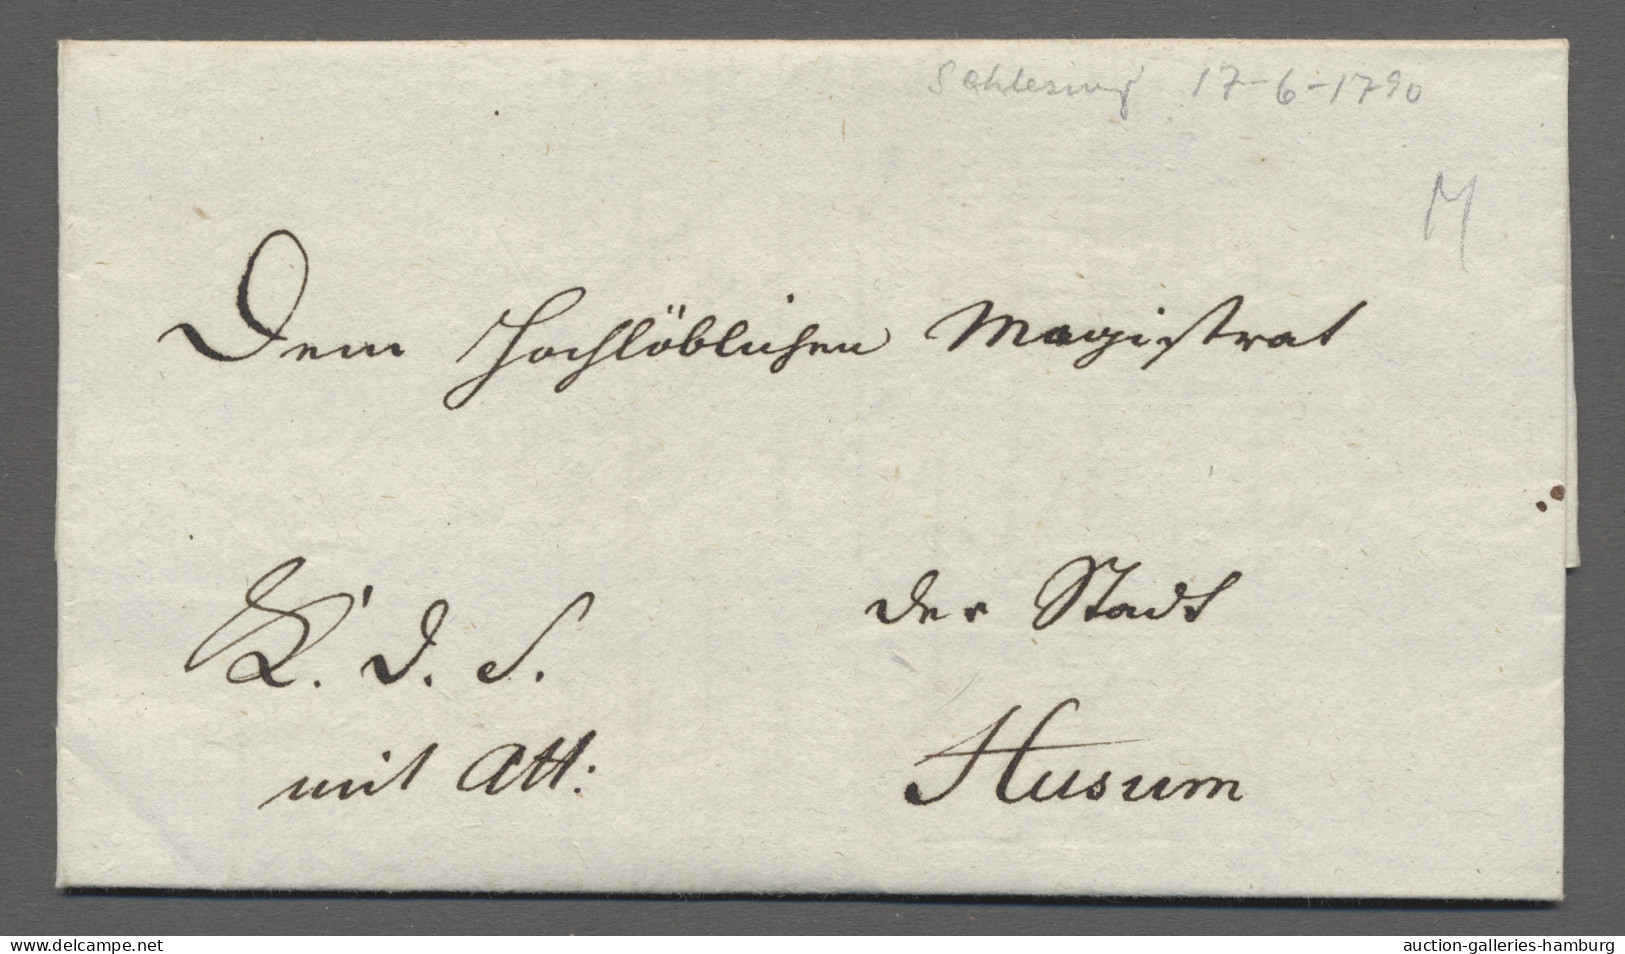 Schleswig 17-6-1790
M
Dem Hochlöblichen Magistrat
der Stadt
K. D. S.
mit Att:
Husum
www.delcampe.net
auction-galleries-hamburg